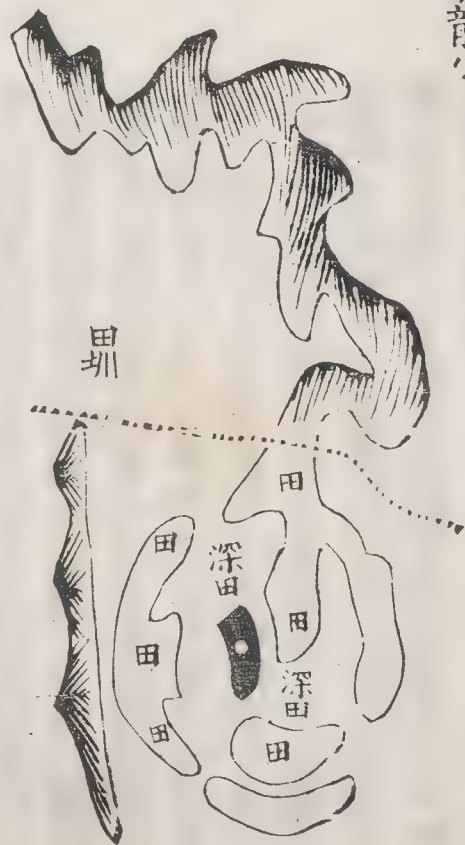 田圳
田
田
深田
田
田
深田
田
田